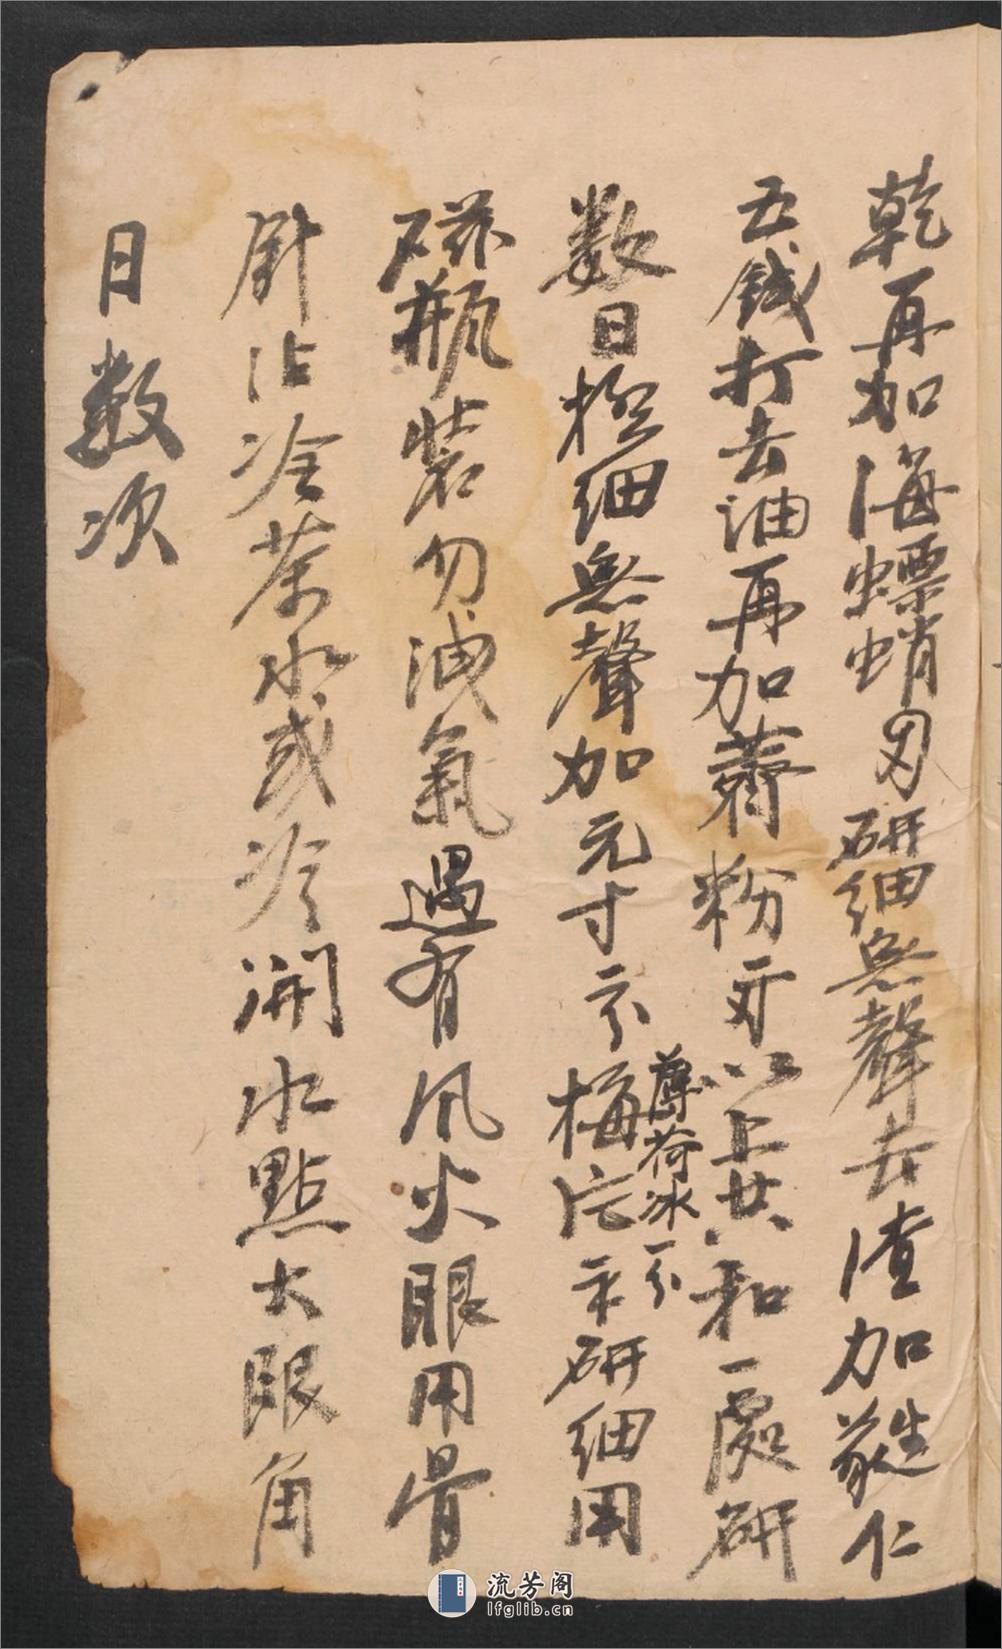 乾再加海螵蛸 研細無聲去渣加蕤仁
五錢打去油再加薺粉 以上共和一處研
数日極細無聲加元寸 梅片 研細用
薄荷冰一分
磁瓶装勿洩氣遇有風火眼用骨
針沾冷茶水或冷開水點大眼角
日數次
流芳阁
lfglib.cn